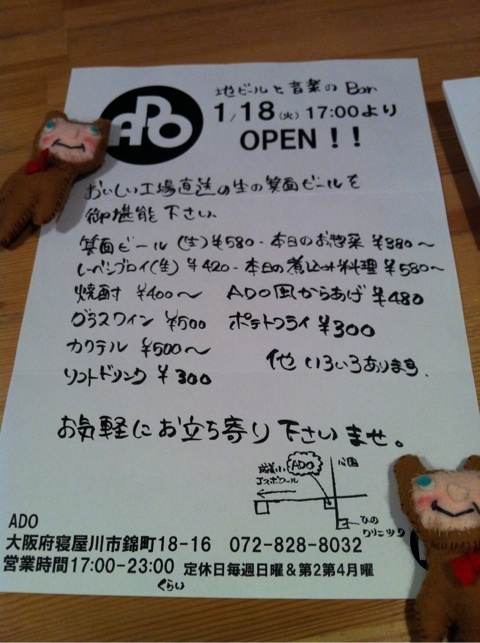 ADO
地ビールと音楽の Bar
1/18(火) 17:00より
OPEN!!
おいしい工場直送の生の箕面ビールを
御堪能下さい。
箕面ビール(生)¥580・本日のお惣菜 ¥380〜
レーベンブロイ(生) ¥420・本日の煮込み料理 ¥580〜
焼酎 ¥400〜 ADO風からあげ ¥480
グラスワイン ¥500 ポテトフライ ¥300
カクテル ¥500〜 他 いろいろあります.
ソフトドリンク ¥300
お気軽にお立ち寄り下さいませ。
ADO
公園
ひの
クリニック
ADO
大阪府寝屋川市錦町18-16 072-828-8032
営業時間17:00-23:00 定休日毎週日曜&第2第4月曜
くらい